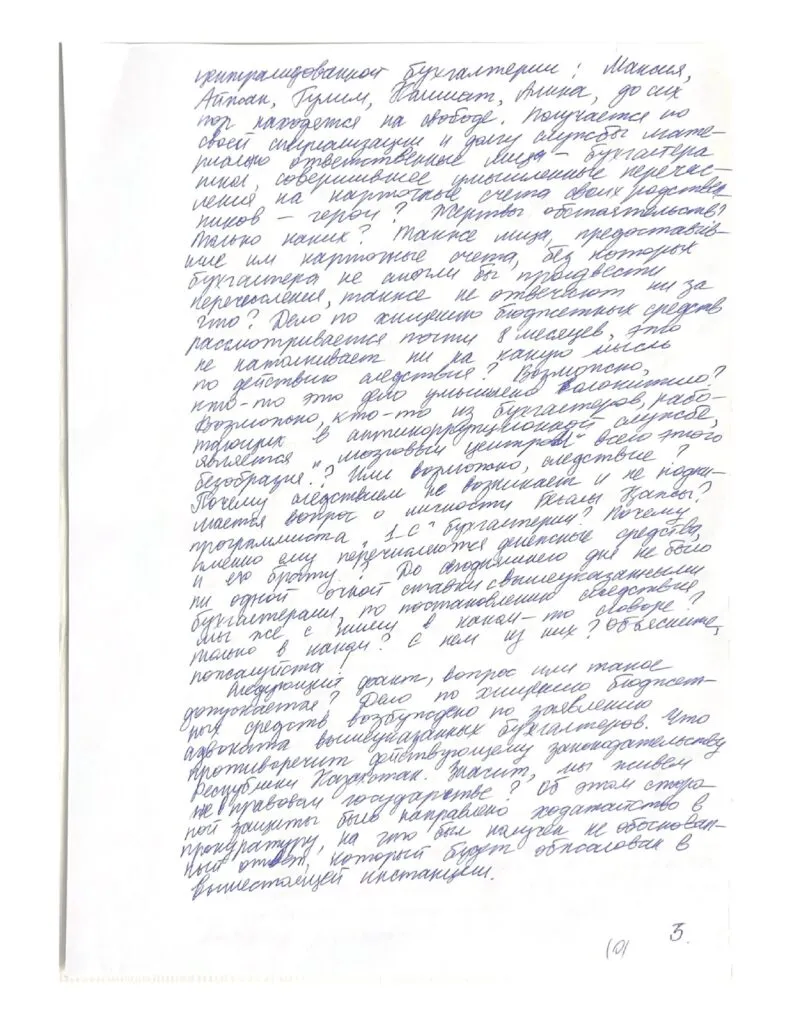 централизованной бухгалтерии: Мансия,
Айжан, Гулим, Калиат, Алина, до сих
пор находятся на свободе. Получается по
своей специализации и долгу службы мате-
риально ответственные лица - бухгалтера
шки, совершившие умышленные перечис-
ления на карточные счета своих родствен-
ников - герои? Жертвы обстоятельств?
Только каких? Также лица, предоставив-
шие им карточные счета, без которых
бухгалтера не смогли бы произвести
перечисления, также не отвечают ни за
что? Дело по хищению бюджетных средств
рассматривается почти 8 месяцев, это
не наталкивает ни на какую мысль
по действию следствия? Возможно,
кто-то это дело умышлено волокитило?
Возможно, кто-то из бухгалтеров, рабо-
тающих в антикоррупционной службе,
является "мозговым центром" всего этого
безобразия? Или возможно, следствие?
Почему следствием не возникает и не подни-
мается вопрос о личности
программиста "1-С" бухгалтерии? Почему
именно ему перечисляются денежные средства,
и его брату? До сегодняшнего дня не было
ни одной очной ставки с вышеуказанными
бухгалтерами, по постановлению следствия
мы же с ними в каком-то сговоре?
только в каком? с кем из них? Объясните,
пожалуйста!
Следующий факт, вопрос или такое
допускается? Дело по хищению бюджет-
ных средств возбуждено по заявлению
адвоката вышеуказанных бухгалтеров. Что
противоречит действующему законодательству
Республики Казахстан. Значит, мы живем
не в правовом государстве? Об этом сторо-
ной защиты было направлено ходатайство в
прокуратуру, на что был получен не обоснован-
ный ответ, который будет обжалован в
вышестоящей инстанции.
3.